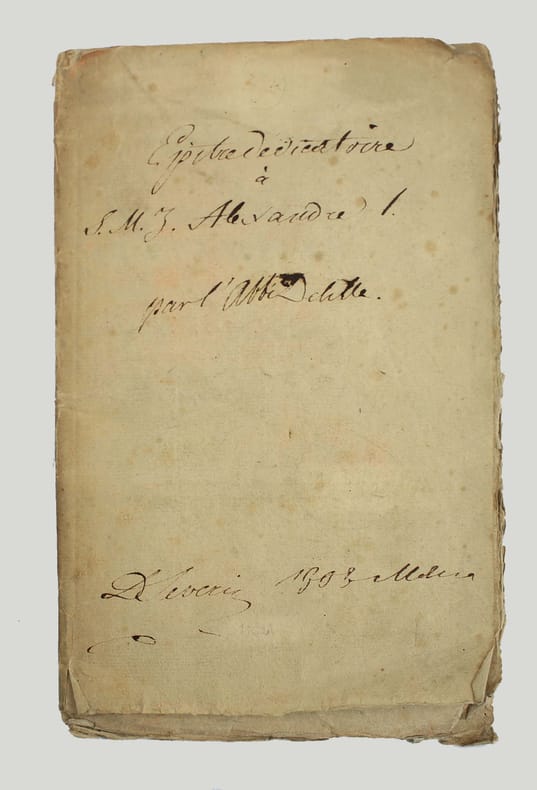 Epitre dedicatoire
à
S. M. I. Alexandre 1.
par l'Abbé Delille.
D Severin